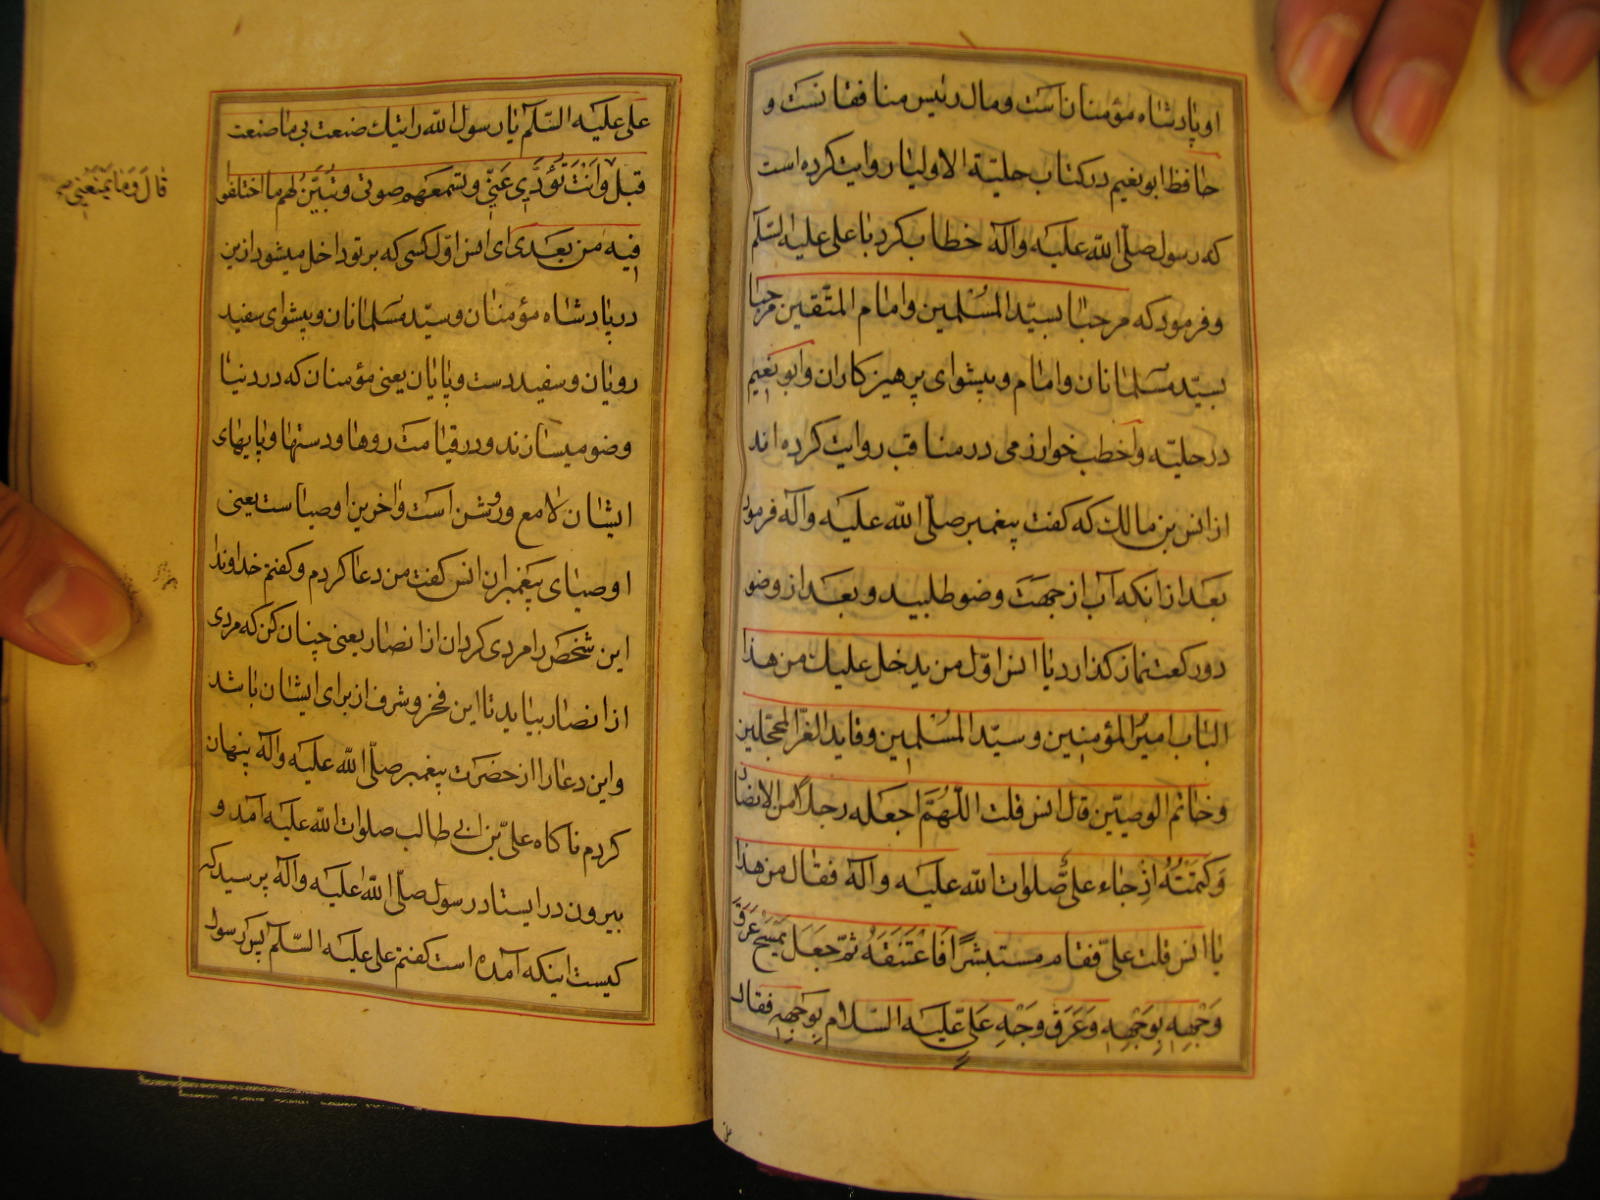 او پادشاه مؤمنانست و مال رئیس منافقانست و
حافظ ابو نعیم در کتاب حلیة الاولیا روایت کرده است
که رسول صلّی الله علیه وآله خطاب کرد با علی علیه السّلم
و فرمود که مرحبا بسیّد المسلمین وامام المتّقین مرحبا
بسیّد مسلمانان وامام و پیشوای پرهیزکاران وابو نعیم
در حلیه واخطب خوارزمی در مناقب روایت کرده اند
از انس بن مالک که کفت پیغمبر صلّی الله علیه وآله فرمود
بعد از انکه آب از جهت وضو طلبید و بعد از وضو
دو رکعت نماز کذارد یا انس اوّل من یدخل علیک من هذا
الباب امیرُ المؤمنین و سیّد المسْلمین وقاید الغرّ المحجّلین
وخاتم الوصیّین قال انس قلت اللّهُمّ اجعله رجلاً من الانصار
وَکتَمْتُهُ اذْ جاء علیٌّ صلوات الله علیه وآله فقال من هذا
یا انس قلت علیّ فقام مستبشراً فَاعْتَنَقَهُ ثمّ جَعَلَ یَمْسَحُ عَرَقَ
وَجْهِهِ بِوَجْهِهِ وَعَرَقَ وَجْهِ عَلیٍّ علیه السّلام بِوَجْهِهِ فقال
علی علیه السّلم یا رسول الله رایتک صنعت بی ما صنعت
قبل وَانْتَ تُؤدّی عَنّی وتسمعهم صوتی وتُبیّنُ لهم ما اختلفوا
قالَ وَمَا یَمْنَعُنی
فیه من بَعدی ای انس اوّل کسی که بر تو داخل میشود ازین
در پادشاه مؤمنان و سیّد مسلمانان و پیشوای سفید
رویان وسفید دست و پایان یعنی مؤمنان که در دنیا
وضو میسازند ودر قیامت روها ودستها و پایهای
ایشان لامع وروشن است وآخرین اوصیاست یعنی
اوصیای پیغمبران انس کفت من دعا کردم وکفتم خداوندا
این شخص را مردی کردان از انصار یعنی چنان کن که مردی
از انصار بیاید تا این فخر و شرف از برای ایشان باشد
واین دعا را از حضرت پیغمبر صلّی الله علیه وآله پنهان
کردم ناکاه علیّ بن ابی طالب صلوات الله علیه آمد و
بیرون در ایستاد رسول صلّی الله علیه وآله پرسید که
کیست اینکه آمده است کفتم علی علیه السّلم پس رسول